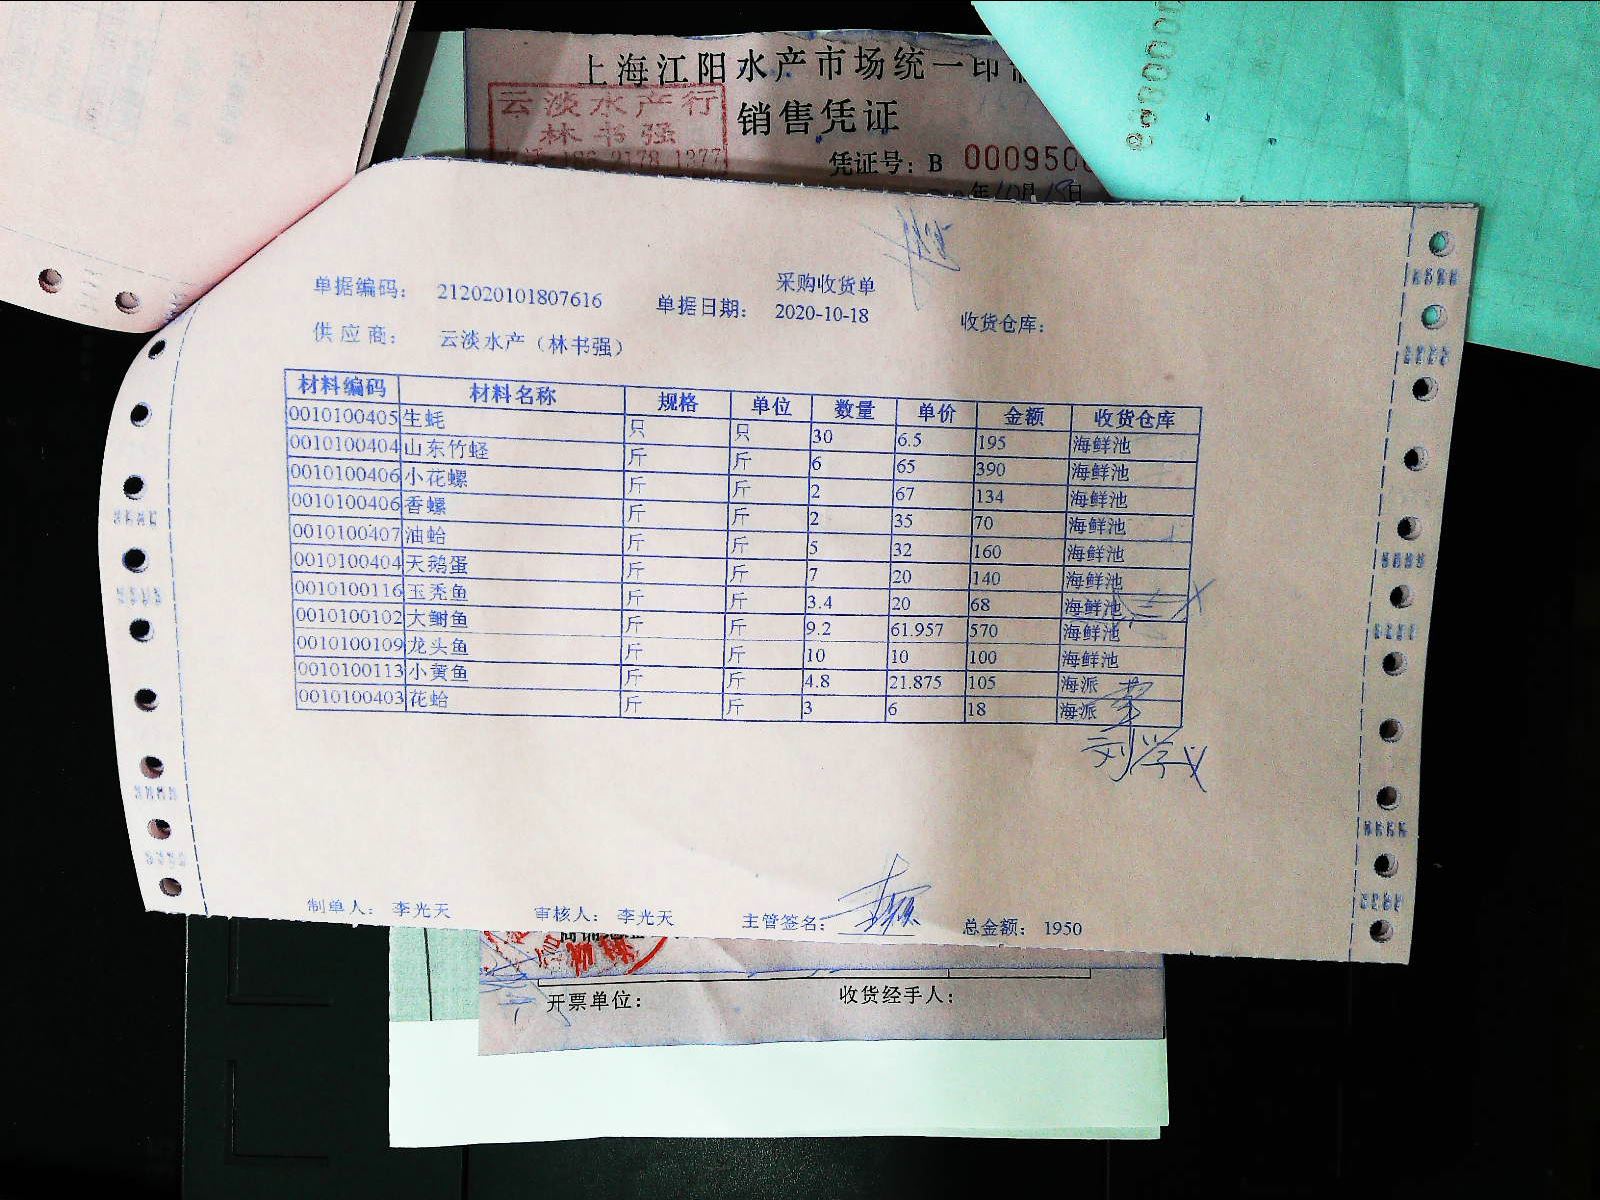 上海江阳水产市场统一印
云淡水产行
林书强
销售凭证
凭证号：B 000950
年10月18日
采购收货单
单据编码： 212020101807616 单据日期： 2020-10-18 收货仓库：
供应商： 云淡水产（林书强）
材料编码 材料名称 规格 单位 数量 单价 金额 收货仓库
0010100405 生蚝 只 只 30 6.5 195 海鲜池
0010100404 山东竹蛏 斤 斤 6 65 390 海鲜池
0010100406 小花螺 斤 斤 2 67 134 海鲜池
0010100406 香螺 斤 斤 2 35 70 海鲜池
0010100407 油蛤 斤 斤 5 32 160 海鲜池
0010100404 天鹅蛋 斤 斤 7 20 140 海鲜池
0010100116 玉秃鱼 斤 斤 3.4 20 68 海鲜池
0010100102 大鲥鱼 斤 斤 9.2 61.957 570 海鲜池
0010100109 龙头鱼 斤 斤 10 10 100 海鲜池
0010100113 小黄鱼 斤 斤 4.8 21.875 105 海派
0010100403 花蛤 斤 斤 3 6 18 海派
刘学义
制单人： 李光天 审核人： 李光天 主管签名： 总金额： 1950
开票单位： 收货经手人：